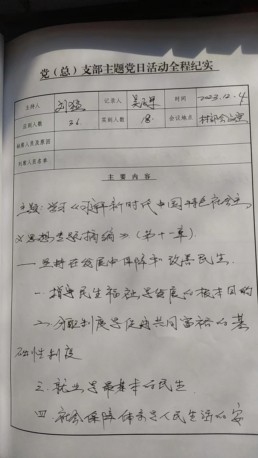 党（总）支部主题党日活动全程纪实
主持人 记录人 时间 2023.12.4
应到人数 26 实到人数 会议地点 村部会议室
缺席人员及原因
列席人员名单
主要内容
主题：学习《习新时代中国特色社会主
义思想专题摘编》（第十章）
——坚持在发展中保障和改善民生
一、增进民生福祉是发展的根本目的
二、分配制度是促进共同富裕的基
础性制度
三、就业是最基本的民生
四、社会保障体系是人民生活的安